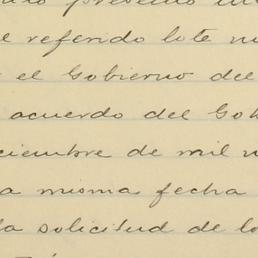 presento
referido lote
el Gobierno del
acuerdo del Go
ciembre de mil
a misma fecha
la solicitud de lo